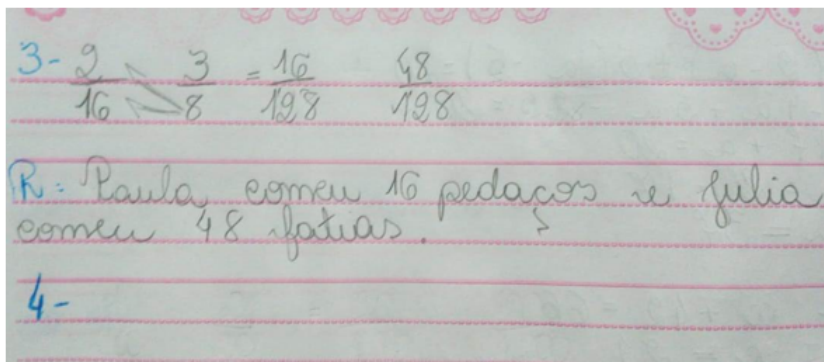 3- 2/16 3/8 = 16/128 48/128
R: Paula comeu 16 pedaços e Julia
comeu 48 fatias.
4-